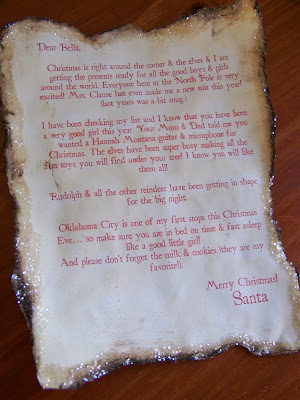 Dear Bella,
Christmas is right around the corner & the elves & I are
getting the presents ready for all the good boys & girls
around the world. Everyone here at the North Pole is very
excited! Mrs. Clause has even made me a new suit this year!
(last years was a bit snug.)
I have been checking my list and I know that you have been
a very good girl this year. Your Mom & Dad told me you
wanted a Hannah Montana guitar & microphone for
Christmas. The elves have been super busy making all the
fun toys you will find under your tree! I know you will like
them all!
Rudolph & all the other reindeer have been getting in shape
for the big night.
Oklahoma City is one of my first stops this Christmas
Eve... so make sure you are in bed on time & fast asleep
like a good little girl!
And please don't forget the milk & cookies (they are my
favorite!).
Merry Christmas!
Santa